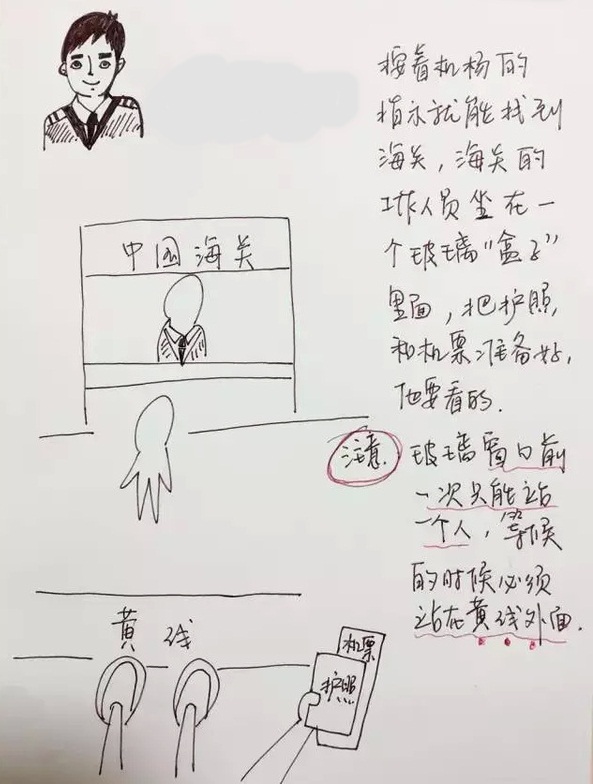 中国海关
按着机场的
指示就能找到
海关，海关的
工作人员坐在一
个玻璃“盒子”
里面，把护照，
和机票准备好，
他要看的.
注意.
玻璃窗口前
一次只能站
一个人，等候
的时候必须
站在黄线外面.
黄线
机票
护照